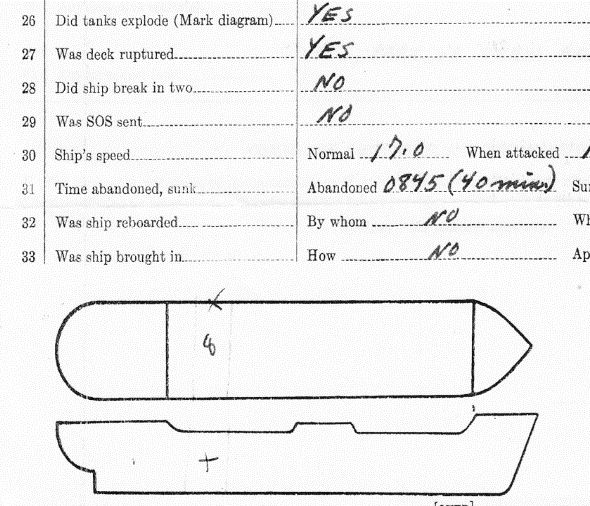 26 Did tanks explode (Mark diagram) YES
27 Was deck ruptured YES
28 Did ship break in two NO
29 Was SOS sent NO
30 Ship's speed Normal 17.0 When attacked
31 Time abandoned, sunk Abandoned 0845 (40 min.)
32 Was ship reboarded By whom NO
33 Was ship brought in How NO
8